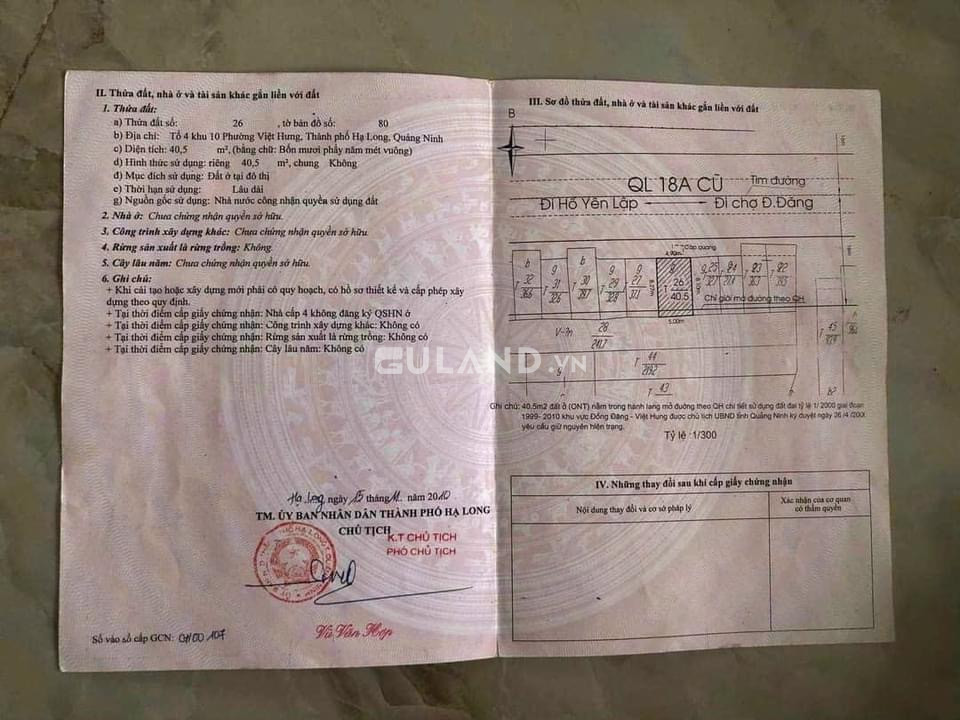 II. Thửa đất, nhà ở và tài sản khác gắn liền với đất
1. Thửa đất:
a) Thửa đất số: 26 , tờ bản đồ số: 80
b) Địa chỉ: Tổ 4 khu 10 Phường Việt Hưng, Thành phố Hạ Long, Quảng Ninh
c) Diện tích: 40,5 m², (bằng chữ: Bốn mươi phẩy năm mét vuông)
d) Hình thức sử dụng: riêng 40,5 m², chung Không
đ) Mục đích sử dụng: Đất ở tại đô thị
e) Thời hạn sử dụng: Lâu dài
g) Nguồn gốc sử dụng: Nhà nước công nhận quyền sử dụng đất
2. Nhà ở: Chưa chứng nhận quyền sở hữu.
3. Công trình xây dựng khác: Chưa chứng nhận quyền sở hữu.
4. Rừng sản xuất là rừng trồng: Không.
5. Cây lâu năm: Chưa chứng nhận quyền sở hữu.
6. Ghi chú:
+ Khi cải tạo hoặc xây dựng mới phải có quy hoạch, có hồ sơ thiết kế và cấp phép xây
dựng theo quy định.
+ Tại thời điểm cấp giấy chứng nhận: Nhà cấp 4 không đăng ký QSHN ở
+ Tại thời điểm cấp giấy chứng nhận: Công trình xây dựng khác: Không có
+ Tại thời điểm cấp giấy chứng nhận: Rừng sản xuất là rừng trồng: Không có
+ Tại thời điểm cấp giấy chứng nhận: Cây lâu năm: Không có
Hạ Long ngày 15 tháng 11 năm 2010
TM. ỦY BAN NHÂN DÂN THÀNH PHỐ HẠ LONG
CHỦ TỊCH
K.T CHỦ TỊCH
PHÓ CHỦ TỊCH
Vũ Văn Hợp
Số vào sổ cấp GCN: CH00107
III. Sơ đồ thửa đất, nhà ở và tài sản khác gắn liền với đất
B
QL 18A CŨ Tim đường
Đi Hồ Yên Lập Đi chợ Đ.Đăng
Cáp quang
4.90m
b g b g g g g
T 32 T 31 T 30 T 29 T 27 T 26 T 25 T 24 T 23 T 22
36.6 32.6 29.7 32.9 40.5
Chỉ giới mở đường theo QH
5.00m
28
241.7
T 45
T 44
219.2
T 43
Ghi chú: 40.5m2 đất ở (ONT) nằm trong hành lang mở đường theo QH chi tiết sử dụng đất đai tỷ lệ 1/ 2000 giai đoạn
1999- 2010 khu vực Đồng Đăng - Việt Hưng được chủ tịch UBND tỉnh Quảng Ninh ký duyệt ngày 26 /4 /200
yêu cầu giữ nguyên hiện trạng.
Tỷ lệ :1/300
IV. Những thay đổi sau khi cấp giấy chứng nhận
Nội dung thay đổi và cơ sở pháp lý
Xác nhận của cơ quan
có thẩm quyền
GULAND.VN